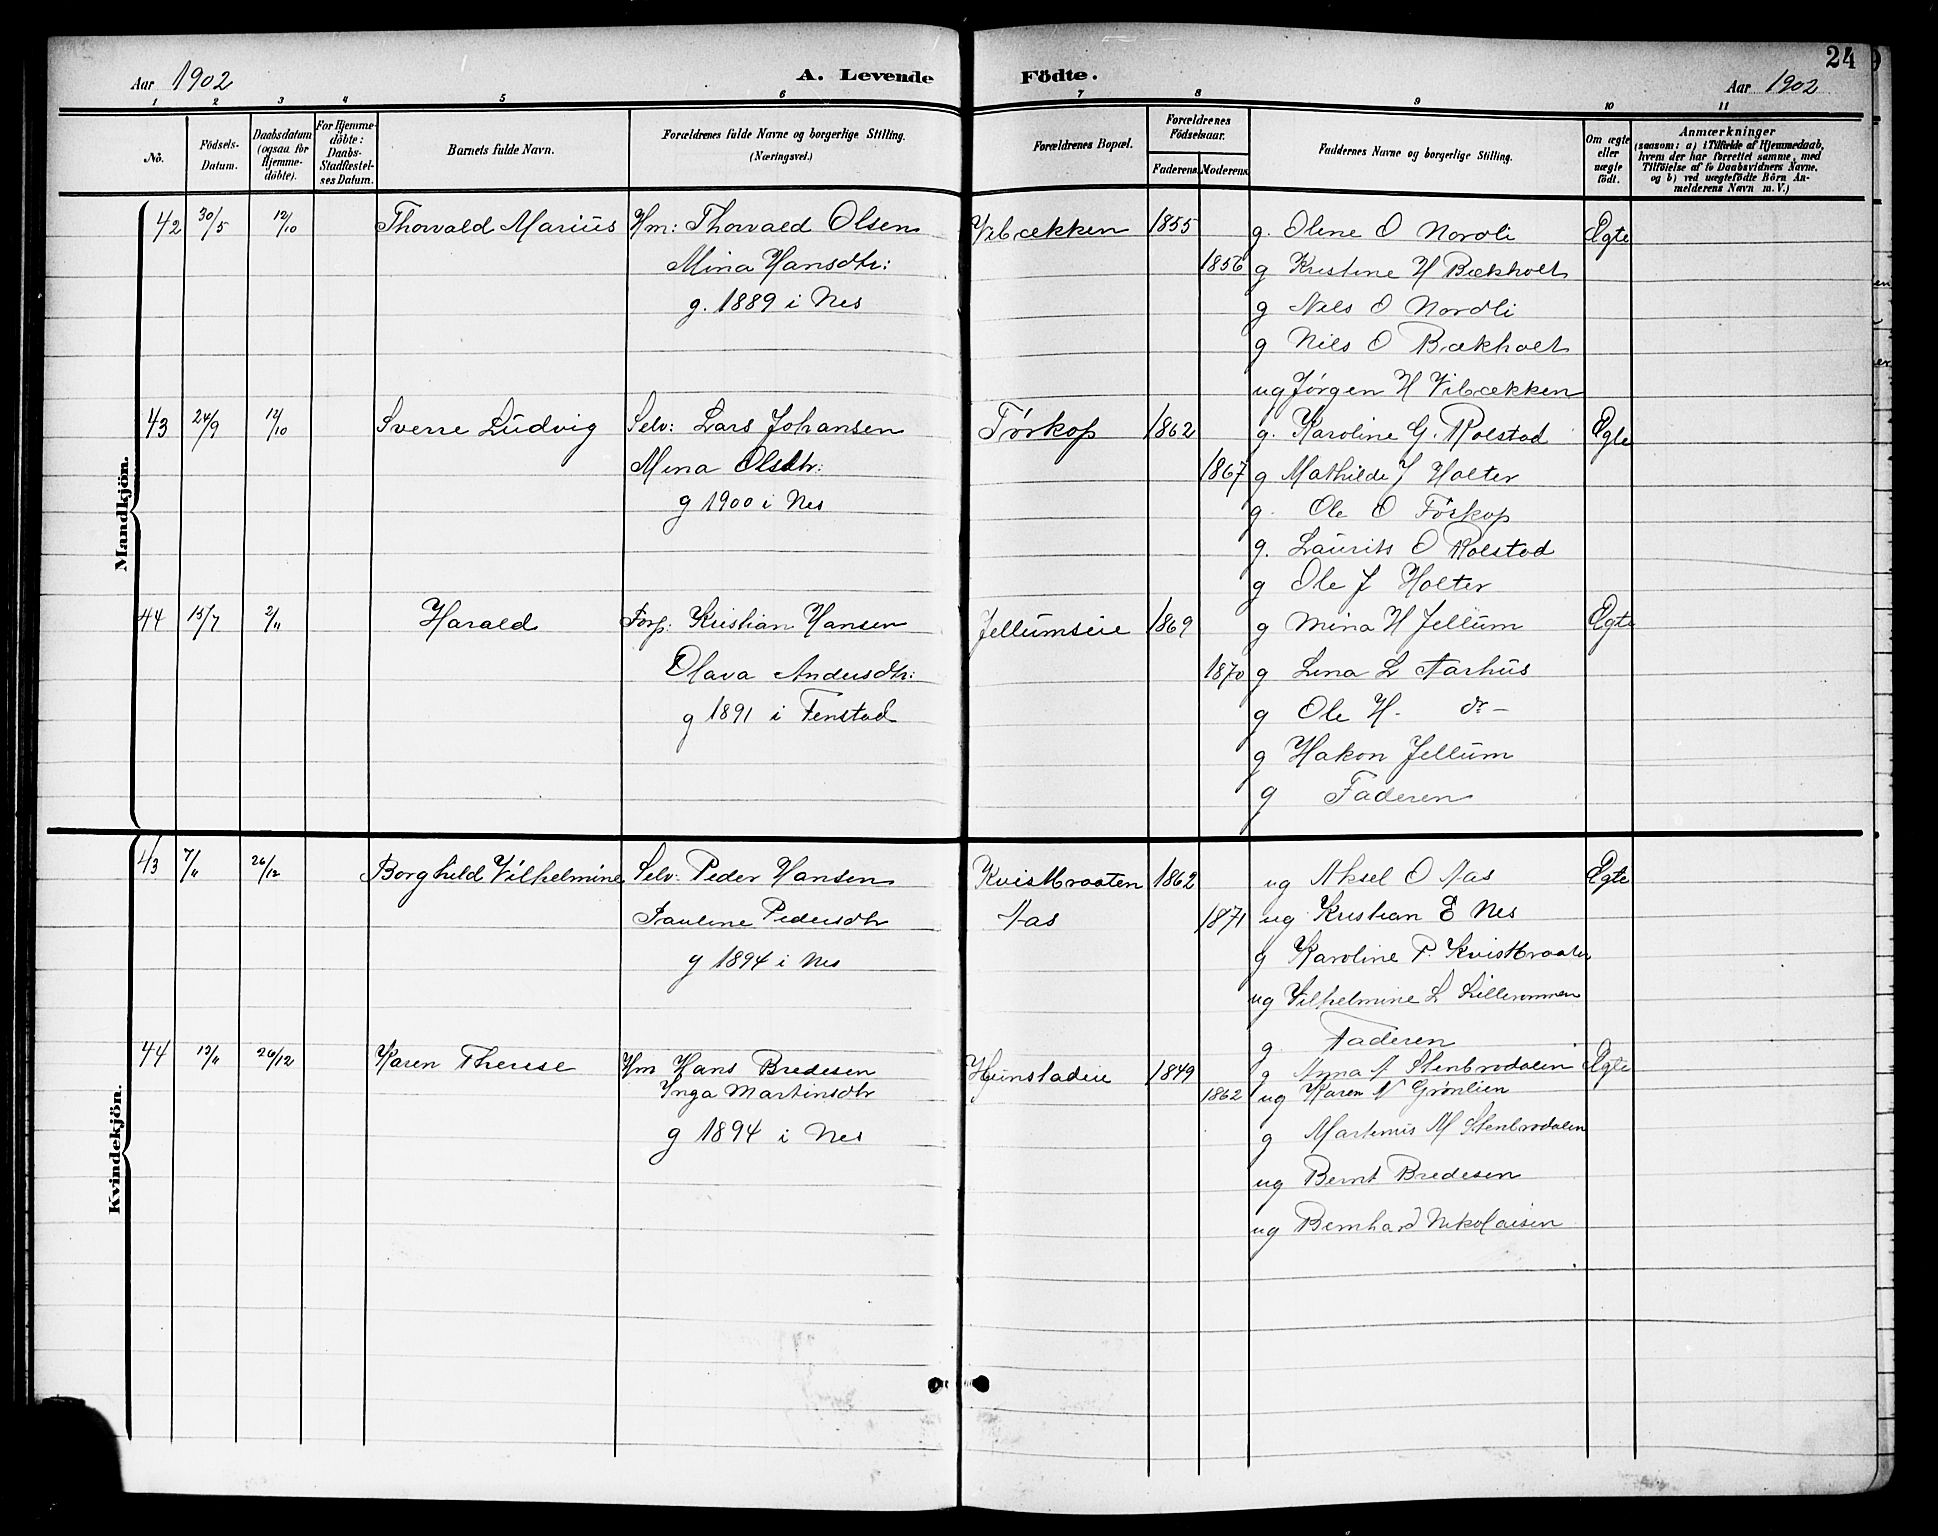 24
Aar 1902 A. Levende Födte. Aar 1902
1 2 3 4 5 6 7 8 9 10 11
No. Födsels-Datum. Daabsdatum (ogsaa for Hjemme-döbte). For Hjemme-döbte: Daabs-Stadfæstel-ses Datum. Barnets fulde Navn. Forældrenes fulde Navne og borgerlige Stilling. (Næringsvei.) Forældrenes Bopæl. Forældrenes Födselsaar. Faderens. Moderens. Faddernes Navne og borgerlige Stilling. Om ægte eller uægte födt. Anmærkninger (saasom: a) i Tilfælde af Hjemmedaab, hvem der har forrettet samme, med Tilföielse af to Daabsvidners Navne. og b) ved uægtefödte Börn An-melderens Navn m. V.)
Mandkjön.
42 30/5 12/10 Thorvald Marius Hm: Thorvald Olsen Vibækken 1855 g. Oline O Nordli Ægte
Mina Hansdtr: 1856 g Kristine H Bækholt
g. 1889 i Nes g Nils O Nordli
g Nils O Bækholt
ug Jørgen H Vibækken
43 24/9 12/10 Sverre Ludvig Selv: Lars Johansen Tørkop 1862 g. Karoline G. Rolstad Ægte
Mina Olsdtr: 1867 g Mathilde J Holter
g 1900 i Nes g. Ole O Tørkop
g. Laurits O Rolstad
g Ole J Holter
44 15/7 2/11 Harald Forp: Kristian Hansen Jellumseie 1869 g Mina H Jellum Ægte
Olava Andersdtr: 1870 g Lina L Aarhus
g 1891 i Fenstad g Ole H. do —
g Hakon Jellum
g Faderen
Kvindekjön.
43 7/11 26/12 Borghild Vilhelmine Selv: Peder Hansen Kvistbraaten 1862 ug Aksel O Aas Ægte
Pauline Pedersdtr Aas 1871 ug Kristian E Nes
g 1894 i Nes g Karoline P. Kvistbraaten
ug Vilhelmine L Lillerommen
g. Faderen
44 13/11 26/12 Karen Therese Hm Hans Bredesen Hunstadeie 1849 g Anna A Stenbrodalen Ægte
Inga Martinsdtr 1862 ug Karen N Grønlien
g 1894 i Nes g Martinus M Stenbrodalen
ug Bernt Bredesen
ug Bernhard Nikolaisen